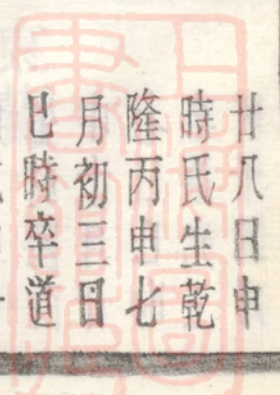 廿八日申
時氏生乾
隆丙申七
月初三日
巳時卒道